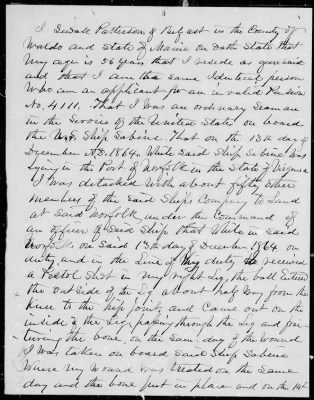 I Sewall Patterson of Belfast in the County of
Waldo and State of Maine on Oath State that
my age is 56 years that I reside as aforesaid
and that I am the same identical person
who am an applicant for an invalid Pension
No. 4111. That I was an ordinary Seaman
in the Service of the United States on board
the U.S. Ship Sabine. That on the 13th day of
December A.D. 1864 while said Ship Sabine was
lying in the Port of Norfolk in the State of Virginia
I was detached with about fifty other
members of the said Ships Company to land
at said Norfolk under the Command of
an officer of said Ship that while in said
Norfolk on said 13th day of December 1864 on
duty, and in the line of my duty he received
a Pistol Shot in my right leg, the ball entered
the out side of the leg about half way from the
Knee to the hip joint, and came out on the
inside of the leg, passing through the leg and frac
turing the bone, on the same day of the wound
I was taken on board said Ship Sabine
where my wound was treated on the same
day and the bone put in place and on the 14th